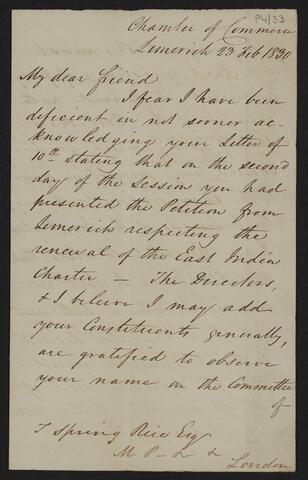 P4/33
Chamber of Commerce
Limerick 23 Feb 1830
My dear friend
I fear I have been
deficient in not sooner ac-
knowledging your Letter of
10th stating that on the second
day of the Session you had
presented the Petition from
Limerick respecting the
renewal of the East India
Charter — The Directors,
& I believe I may add
your Constituents generally,
are gratified to observe
your name on the Committee
of
T Spring Rice Esq
M P
London